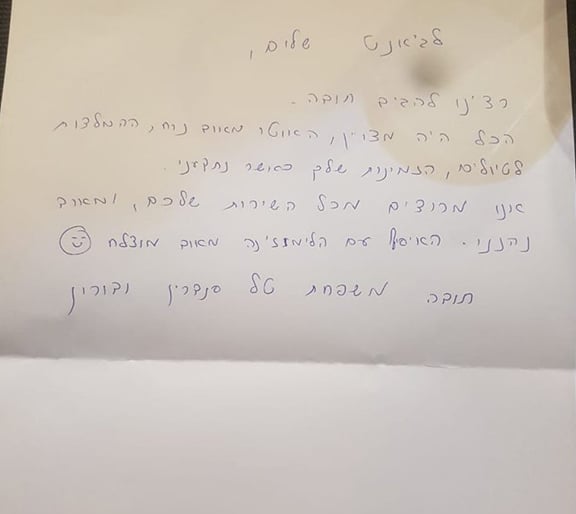 לג'אנט שלום,
רצינו להגיד תודה.
הכל היה מצויין, האוטו מאוד נוח, ההמלצות
לטיולים, הזמינות שלך כאשר נתקענו.
אנו מרוצים מכל השירות שלכם, ומאוד
נהננו. האיסוף עם הלימוזינה מאוד מוצלח
תודה משפחת טל סנדרין ודורון